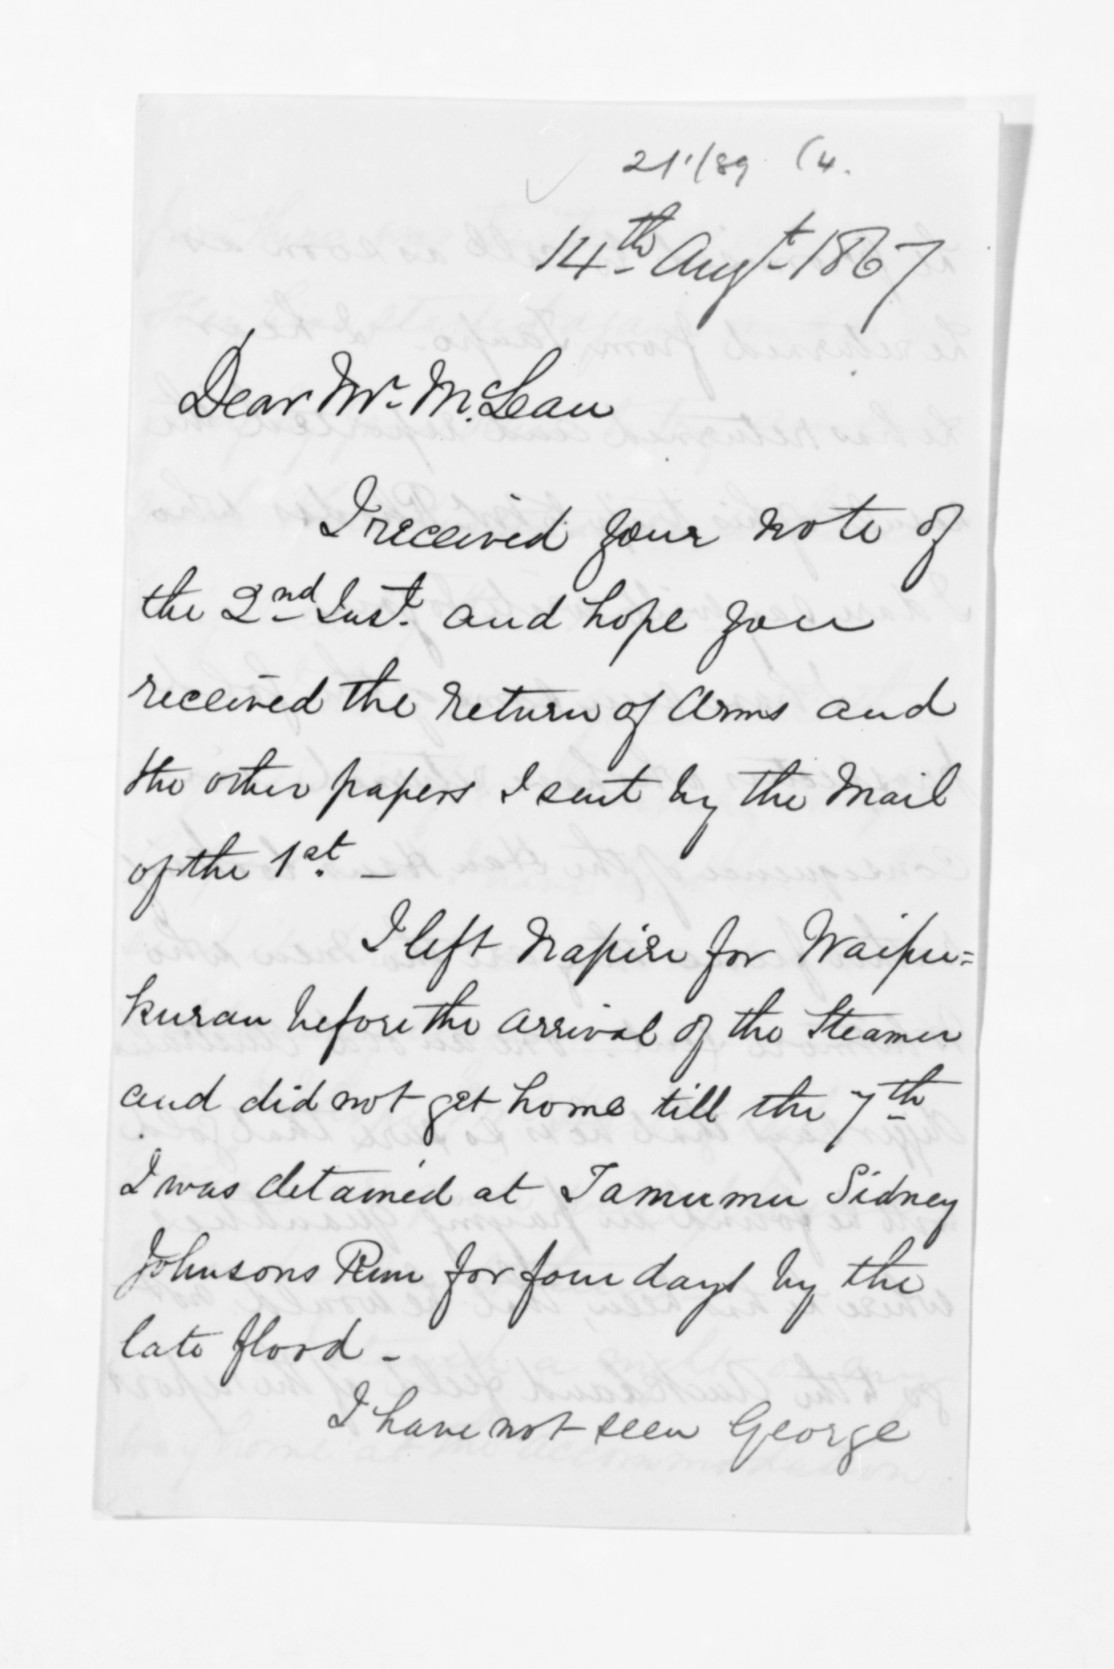 21'/89 (4.
14th Augt 1867
Dear Mr. McLean
I received your note of
the 2nd Inst. and hope you
received the return of Arms and
the other papers I sent by the Mail
of the 1st. —
I left Napier for Waipu=
kurau before the arrival of the Steamer
and did not get home till the 7th
I was detained at Tamumu Sidney
Johnsons Run for four days by the
late flood —
I have not seen George